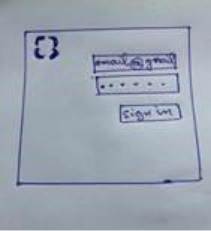 {}
email@gmail
......
sign in